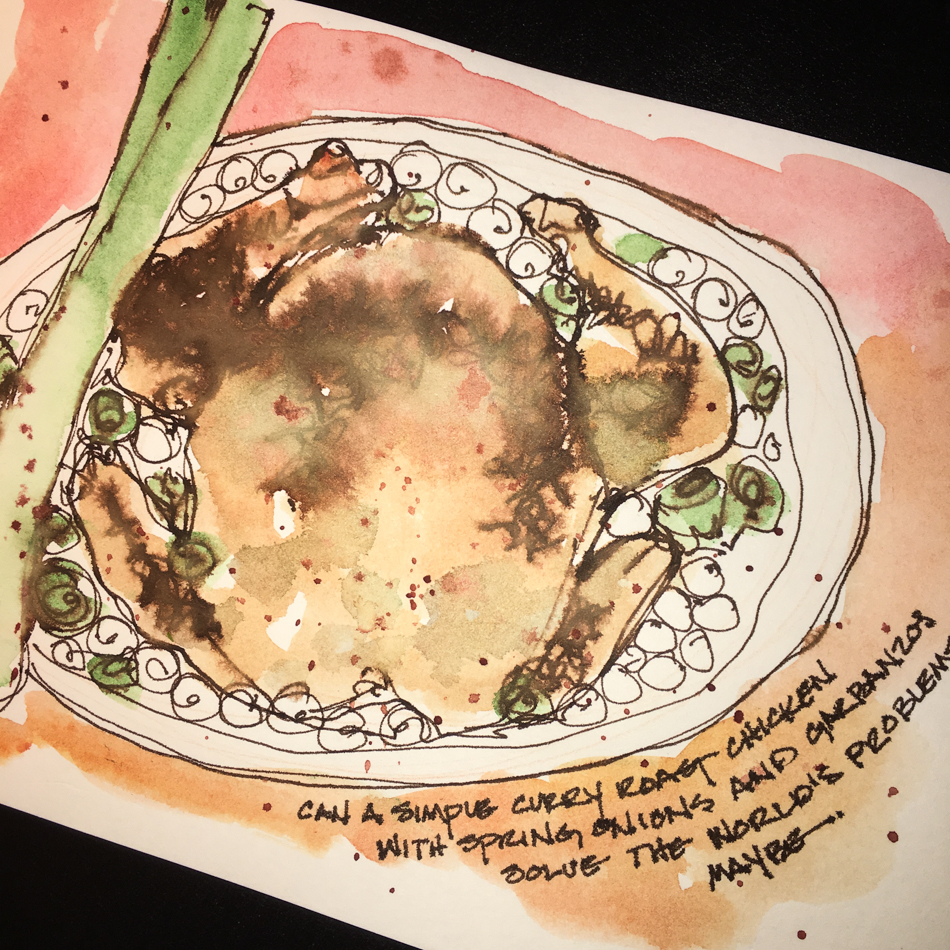 CAN A SIMPLE CURRY ROAST CHICKEN
WITH SPRING ONIONS AND GARBANZOS
SOLVE THE WORLD'S PROBLEMS
MAYBE—.